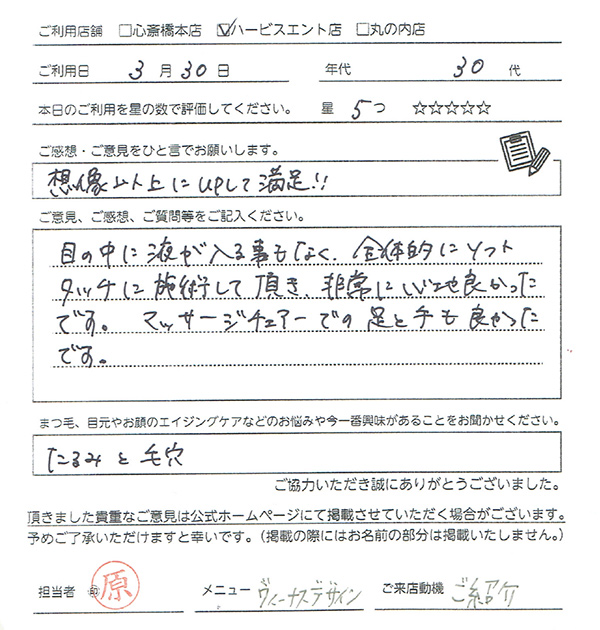 ご利用店舗 □心斎橋本店 ☑ハービスエント店 □丸の内店
ご利用日 3月30日 年代 30代
本日のご利用を星の数で評価してください。 星 5つ ☆☆☆☆☆
ご感想・ご意見をひと言でお願いします。
想像以上にupして満足!!
ご意見、ご感想、ご質問等をご記入ください。
目の中に液が入る事もなく、全体的にソフト
タッチに施術して頂き、非常に心地良かった
です。 マッサージチェアーでの足と手も良かった
です。
まつ毛、目元やお顔のエイジングケアなどのお悩みや今一番興味があることをお聞かせください。
たるみと毛穴
ご協力いただき誠にありがとうございました。
頂きました貴重なご意見は公式ホームページにて掲載させていただく場合がございます。
予めご了承いただけますと幸いです。（掲載の際にはお名前の部分は掲載いたしません。）
担当者 ㊞ 原 メニュー ヴィーナスデザイン ご来店動機 ご紹介